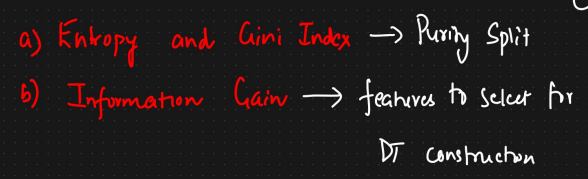 a) Entropy and Gini Index → Purity Split
b) Information Gain → features to select for
DT construction